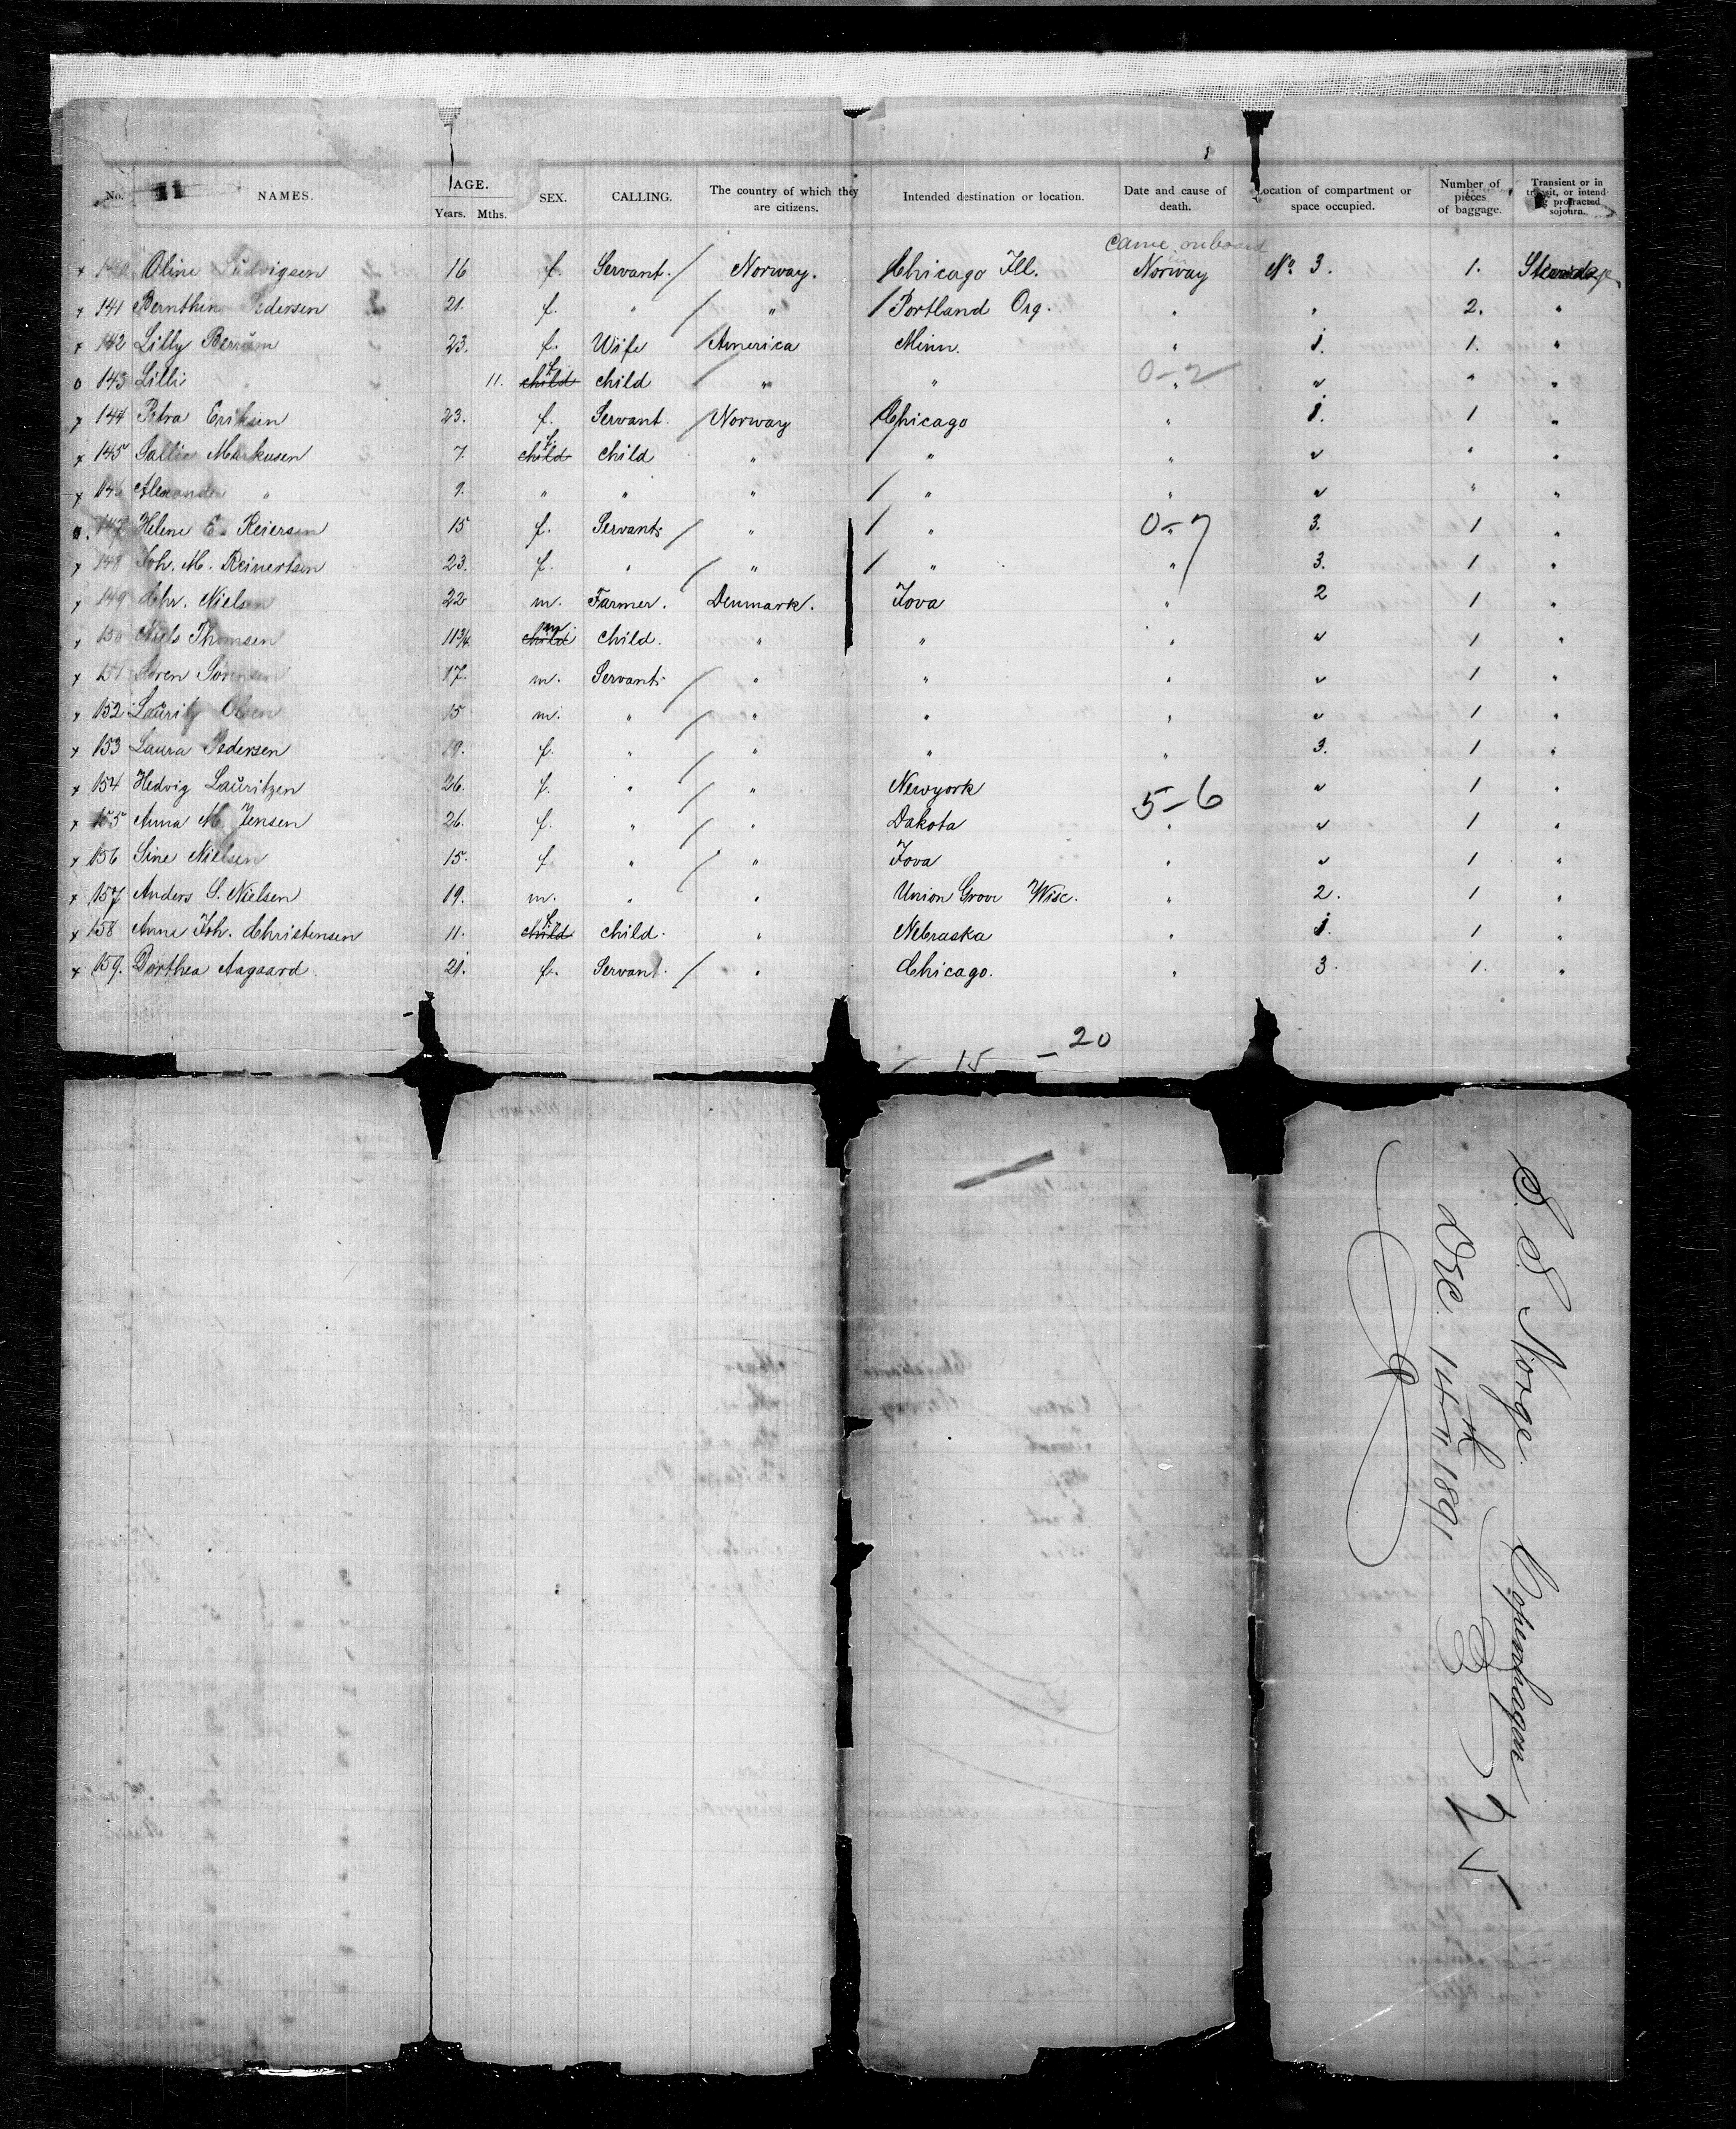 No. NAMES. AGE. Years. Mths. SEX. CALLING. The country of which they are citizens. Intended destination or location. Date and cause of death. Location of compartment or space occupied. Number of pieces of baggage. Transient or in transit, or intend protracted sojourn.
came onboard in
x 140 Oline Ludvigsen 16 f. Servant. / Norway. Chicago Ill. Norway No 3. 1. Steerage
x 141 Pedersen 21. f. " / " / Portland Org. " " 2. "
x 142 Lilly Berrum 23. f. Wife / America Minn. " 1. 1. "
o 143 Lilli " 11. child f. child / " " 0-2 " " " "
x 144 Petra Eriksen 23. f. Servant. / Norway Chicago " 1. 1 "
x 145 Markusen 7. child f. child " / " " " " "
x 146 Alexander " 9. " " " / " " " " "
147 Helene E. Reiersen 15 f. Servants / " / " 0-7 3. 1 "
x 148 Joh. M. Reinertsen 23. f. " / " / " " 3. 1 "
x 149 Chr. Nielsen 22 m. Farmer. Denmark. Iova " 2 1 "
x 150 Niels Thomsen 11 3/4. child m. child. " " " " 1 "
x 151 Soren Sorensen 17. m. Servants / " " " " 1 "
x 152 Lauritz Olsen 15 m. " / " " " " 1 "
x 153 Laura Pedersen 19. f. " / " " " 3. 1 "
x 154 Hedvig Lauritzen 26. f. " / " Newyork " 1 "
5-6
x 155 Anna M. Jensen 26. f. " / " Dakota " " 1 "
x 156 Sine Nielsen 15. f. " / " Iova " " 1 "
x 157 Anders S. Nielsen 19. m. " " Union Grove Wisc. " 2. 1 "
x 158 Anna Joh. Christensen 11. child f. child. " Nebraska " 1. 1 "
x 159. Dorthea Aagaard. 21. f. Servant. / " Chicago. " 3. 1. "
15 - 20
S. S. Norge. Copenhagen
Dec. 14th 1891